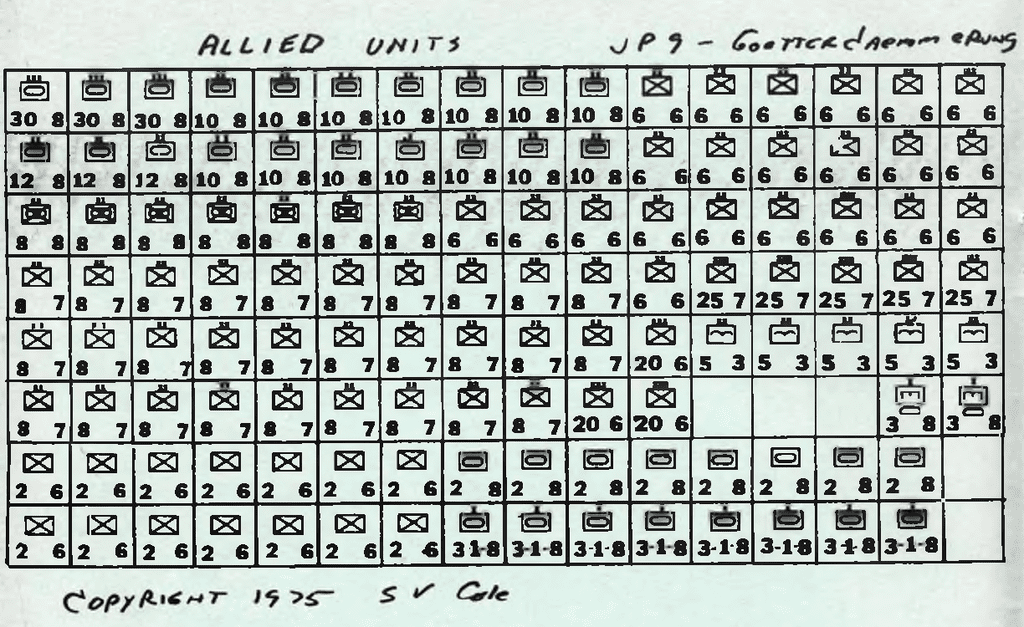 ALLIED UNITS JP9 - GOETTERdAEMMERUNG
30 8 30 8 30 8 10 8 10 8 10 8 10 8 10 8 10 8 10 8 6 6 6 6 6 6 6 6 6 6 6 6
12 8 12 8 12 8 10 8 10 8 10 8 10 8 10 8 10 8 10 8 6 6 6 6 6 6 6 6 6 6 6 6
8 8 8 8 8 8 8 8 8 8 8 8 8 8 6 6 6 6 6 6 6 6 6 6 6 6 6 6 6 6 6 6
8 7 8 7 8 7 8 7 8 7 8 7 8 7 8 7 8 7 8 7 6 6 25 7 25 7 25 7 25 7 25 7
8 7 8 7 8 7 8 7 8 7 8 7 8 7 8 7 8 7 8 7 20 6 5 3 5 3 5 3 5 3 5 3
8 7 8 7 8 7 8 7 8 7 8 7 8 7 8 7 8 7 20 6 20 6 3 8 3 8
2 6 2 6 2 6 2 6 2 6 2 6 2 6 2 8 2 8 2 8 2 8 2 8 2 8 2 8 2 8
2 6 2 6 2 6 2 6 2 6 2 6 2 6 3-1-8 3-1-8 3-1-8 3-1-8 3-1-8 3-1-8 3-1-8 3-1-8
COPYRIGHT 1975 S V Cole